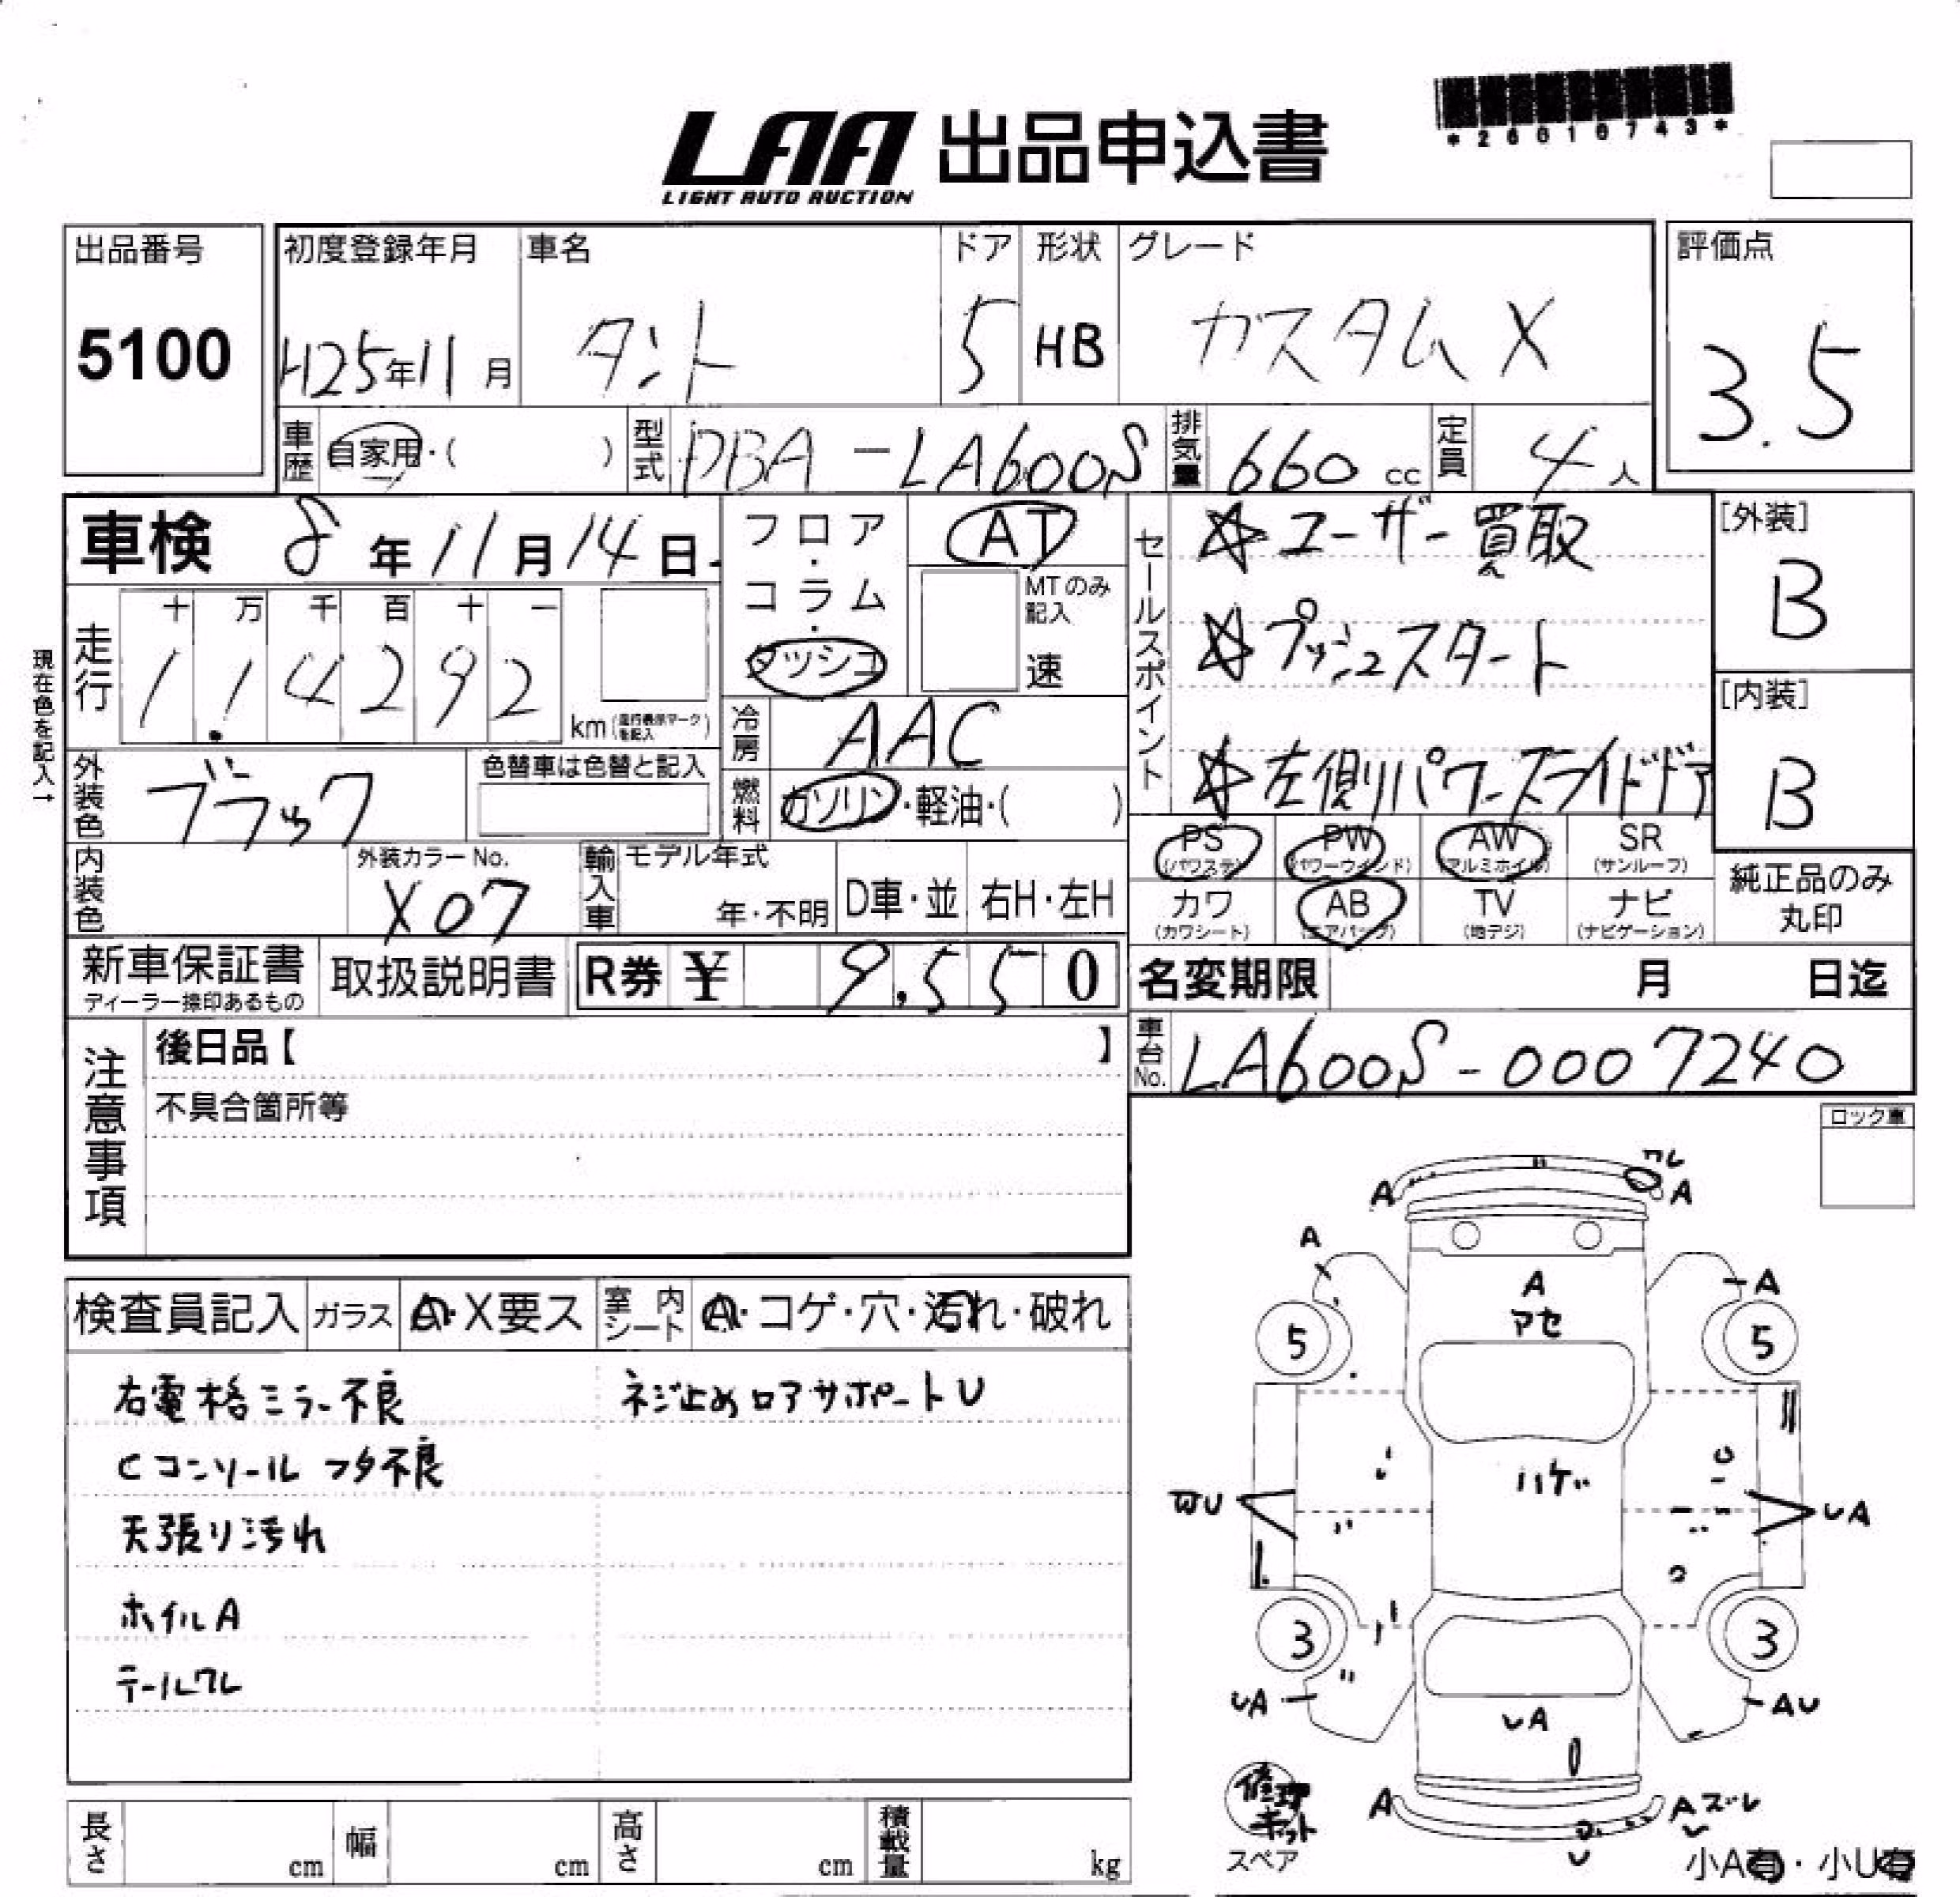 LAA 出品申込書
LIGHT AUTO AUCTION
出品番号
5100
初度登録年月
H25年11月
車名
タント
ドア
5
形状
HB
グレード
カスタム X
評価点
3.5
車歴 自家用・( )
型式 DBA-LA600S
排気量 660 cc
定員 4人
車検 8年11月14日
走行
十 万 千 百 十 一
1 1 4 2 9 2
km(走行表示マークを記入)
現在色を記入→
フロア・コラム・ダッシュ
AT
MTのみ記入
速
冷房 AAC
燃料 ガソリン・軽油・( )
セールスポイント
☆ユーザー買取
☆プッシュスタート
☆左側パワースライドドア
[外装]
B
[内装]
B
外装色 ブラック
色替車は色替と記入
内装色
外装カラーNo.
X07
輸入車 モデル年式
年・不明
D車・並
右H・左H
PS (パワステ)
PW (パワーウインド)
AW (アルミホイル)
SR (サンルーフ)
カワ (カワシート)
AB (エアバッグ)
TV (地デジ)
ナビ (ナビゲーション)
純正品のみ丸印
新車保証書
ディーラー捺印あるもの
取扱説明書
R券 ¥ 9,550
名変期限 月 日迄
車台No. LA600S-0007240
注意事項
後日品【 】
不具合箇所等
ロック車
検査員記入
ガラス A・X要ス
室内シート A・コゲ・穴・汚れ・破れ
右電格ミラー不良
ネジ止めロアサポートU
Cコンソールフタ不良
天張り汚れ
ホイルA
テールワレ
A
A
A
A
A
アセ
5
5
ハゲ
UA
3
3
UA
AU
UA
修理キット
スペア
A
A ズレ
U
小A有・小U有
長さ cm
幅 cm
高さ cm
積載量 kg